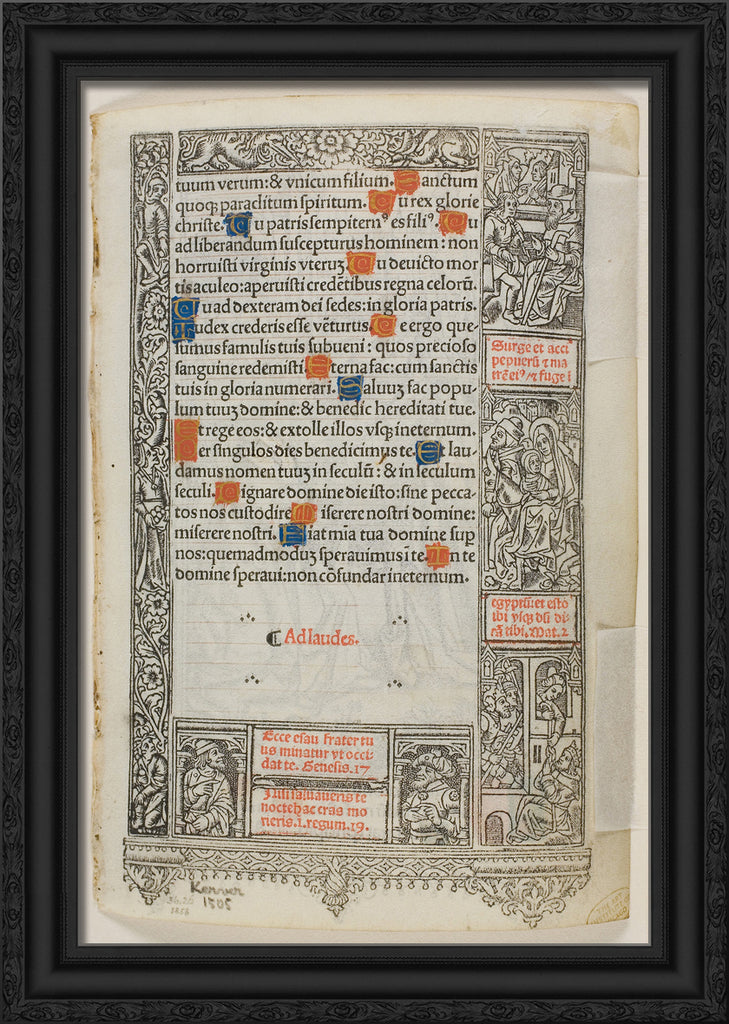 tuum verum: & vnicum filium. Sanctum
quoqꝫ paraclitum spiritum. Tu rex glorie
christe. Tu patris sempiternꝰ es filiꝰ. Tu
ad liberandum suscepturus hominem: non
horruisti virginis vteruꝫ. Tu deuicto mor
tis aculeo: aperuisti credētibus regna celorū.
Tu ad dexteram dei sedes: in gloria patris.
Iudex crederis esse vēturus. Te ergo que-
sumus famulis tuis subueni: quos precioso
sanguine redemisti. Eterna fac: cum sanctis
tuis in gloria numerari. Saluuꝫ fac popu-
lum tuuꝫ domine: & benedic hereditati tue.
Et rege eos: & extolle illos vsqꝫ ineternum.
Per singulos dies benedicimus te. Et lau-
damus nomen tuuꝫ in seculū: & in seculum
seculi. Dignare domine die isto: sine pecca-
to nos custodire. Miserere nostri domine:
miserere nostri. Fiat mīa tua domine sup
nos: quemadmoduꝫ sperauimus ī te. In te
domine speraui: non cōfundar ineternum.
Ad laudes.
Surge et acci
pe puerū ⁊ ma
trē eiꝰ ⁊ fuge ī
egyptū: et esto
ibi vsqꝫ dū di-
cā tibi. Mat. 2
Ecce esau frater tu
us minatur vt occi-
dat te. Genesis. 17
Nisi saluaueris te
nocte hac cras mo
rieris. 1. regum. 19.
Kerver
1505